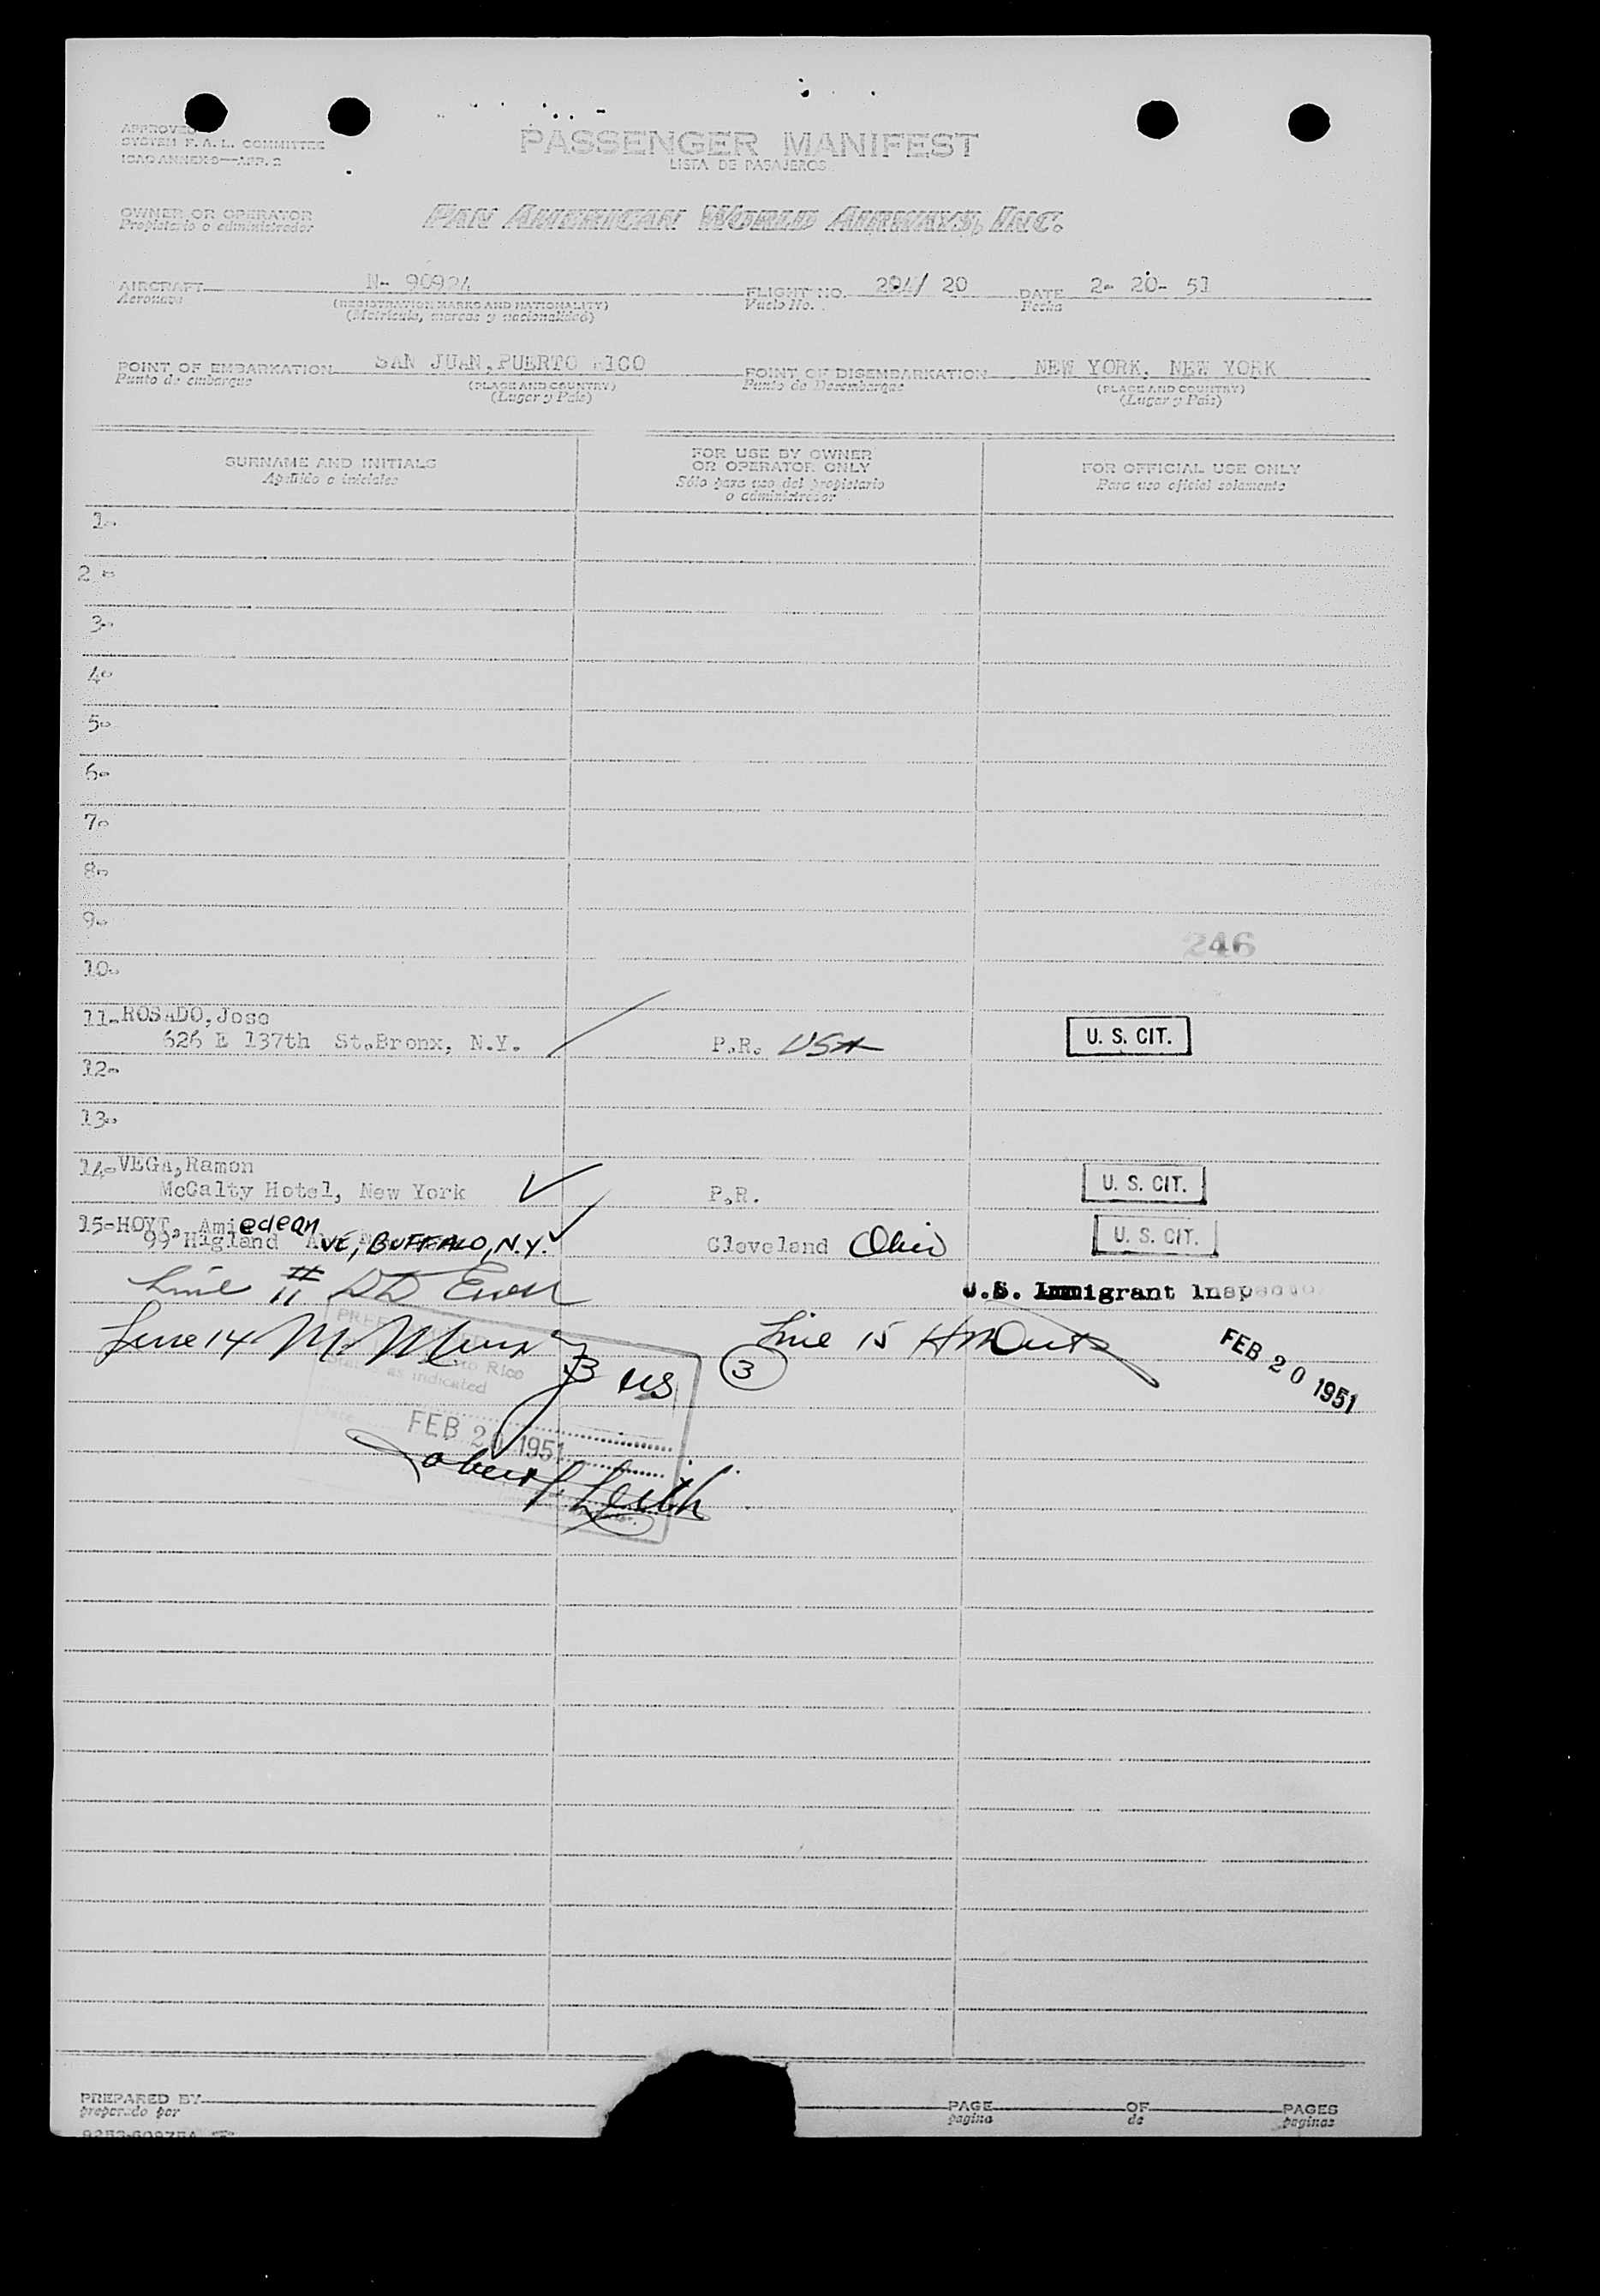 APPROVED
SYSTEM F. A. L. COMMITTEE
ICAO ANNEX 9—APP. 2
PASSENGER MANIFEST
LISTA DE PASAJEROS
OWNER OR OPERATOR
Propietario o administrador
PAN AMERICAN WORLD AIRWAYS, INC.
AIRCRAFT N- 90924 FLIGHT NO. 204/ 20 DATE 2- 20- 51
Aeronave (REGISTRATION MARKS AND NATIONALITY) Vuelo No. Fecha
(Matrícula, marcas y nacionalidad)
POINT OF EMBARKATION SAN JUAN, PUERTO RICO POINT OF DISEMBARKATION NEW YORK, NEW YORK
Punto de embarque (PLACE AND COUNTRY) Punto de Desembarque (PLACE AND COUNTRY)
(Lugar y País) (Lugar y País)
SURNAME AND INITIALS FOR USE BY OWNER OR OPERATOR ONLY FOR OFFICIAL USE ONLY
Apellido e iniciales Sólo para uso del propietario o administrador Para uso oficial solamente
1-
2-
3-
4-
5-
6-
7-
8-
9-
246
10-
11-ROSADO, Jose
626 E 137th St.Bronx, N.Y. P.R. USA U. S. CIT.
12-
13-
14-VEGA, Ramon
McCalty Hotel, New York P.R. U. S. CIT.
15-HOYT, Amiedean
99 Higland AVE, BUFFALO, N.Y. Cleveland Ohio U. S. CIT.
Line # 11
U.S. Immigrant Inspector
Line 14 Line 15
FEB 20 1951
3 US 3
Rico
as indicated
Date
FEB 20 1951
Robert Leith
PREPARED BY PAGE OF PAGES
preparado por pagina de paginas